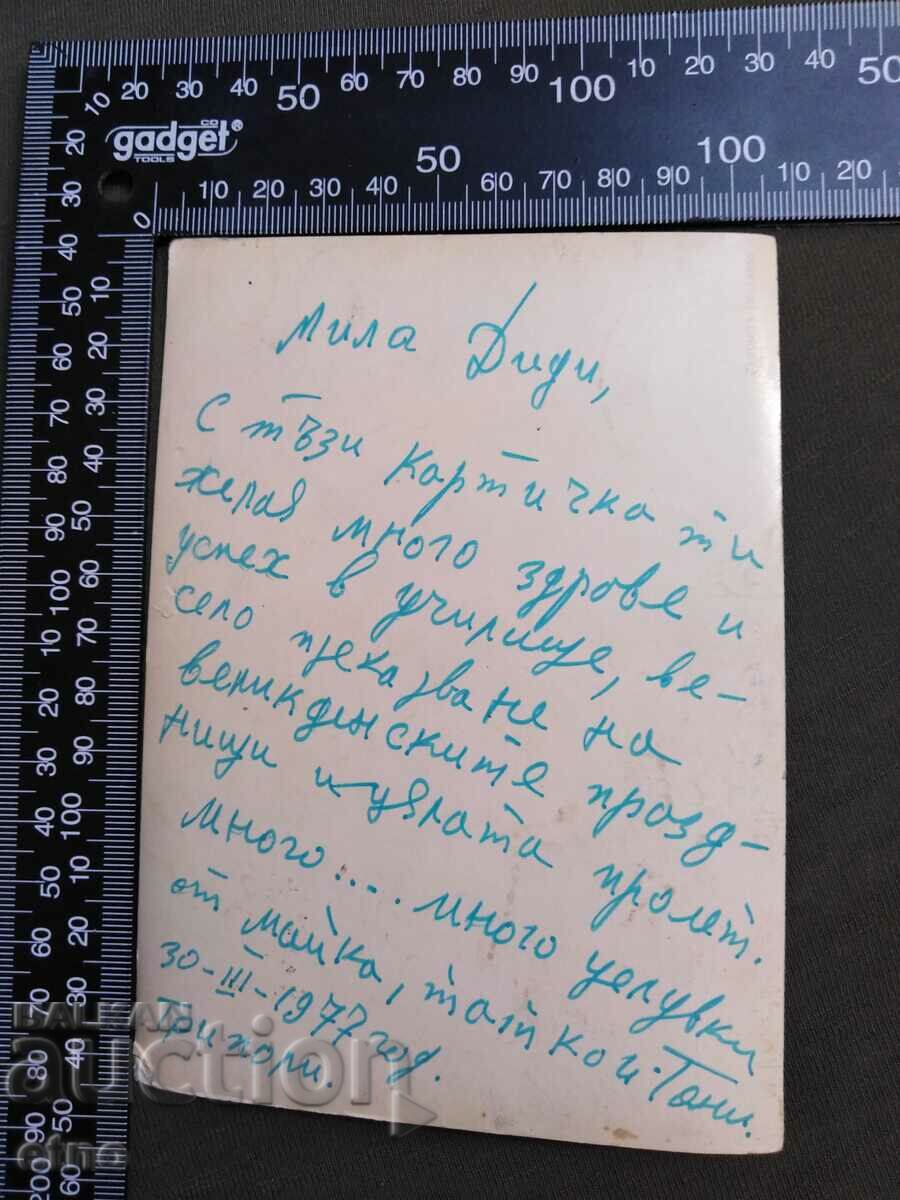 10 20 30 40 50 60 70 80 90 100 10 20 30 40 50
gadget®
CO
TOOLS
0 10 20 30 40 50 60 70 80 90 100 10 20
Мила Диди,
С тъзи картичка ти
желая много здраве и
успех в училище, ве-
село прекарване на
великденските празд-
ници и цялата пролет.
много.... много целувки
от майка, татко и Тони.
30-III-1977 год.
BALKAN
auction
etno